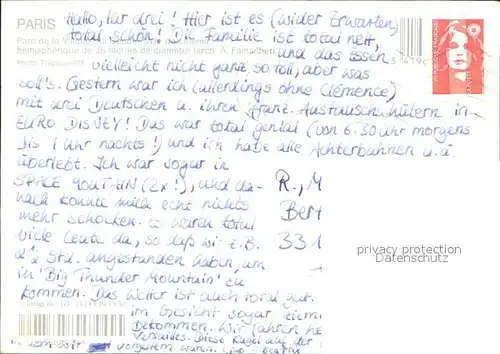 PARIS
Hallo, Ihr drei! Hier ist es (wider Erwarten)
total schön! Die Familie ist total nett,
und das Essen
vielleicht nicht ganz so toll, aber was
soll's. Gestern war ich (allerdings ohne Clémence)
mit drei Deutschen u. ihren franz. Austauschschülern in
EURO DISNEY! Das war total genial (von 6.30 Uhr morgens
bis 1 Uhr nachts!) und ich habe alle Achterbahnen u.ä.
überlebt. Ich war sogar in
SPACE MOUNTAIN (2x!), und da-
nach konnte mich echt nichts
mehr schocken. Es waren total
viele Leute da, so daß wir z.B.
2½ Std. angestanden haben, um
in 'Big Thunder Mountain' zu
kommen. Das Wetter ist auch total gut.
im Gesicht sogar
bekommen. Wir fahren
Versailles. Diese Kugel auf der
vorgestern waren.
R., M
BerH
331
REPUBLIQUE FRANÇAISE
privacy protection
Watermark